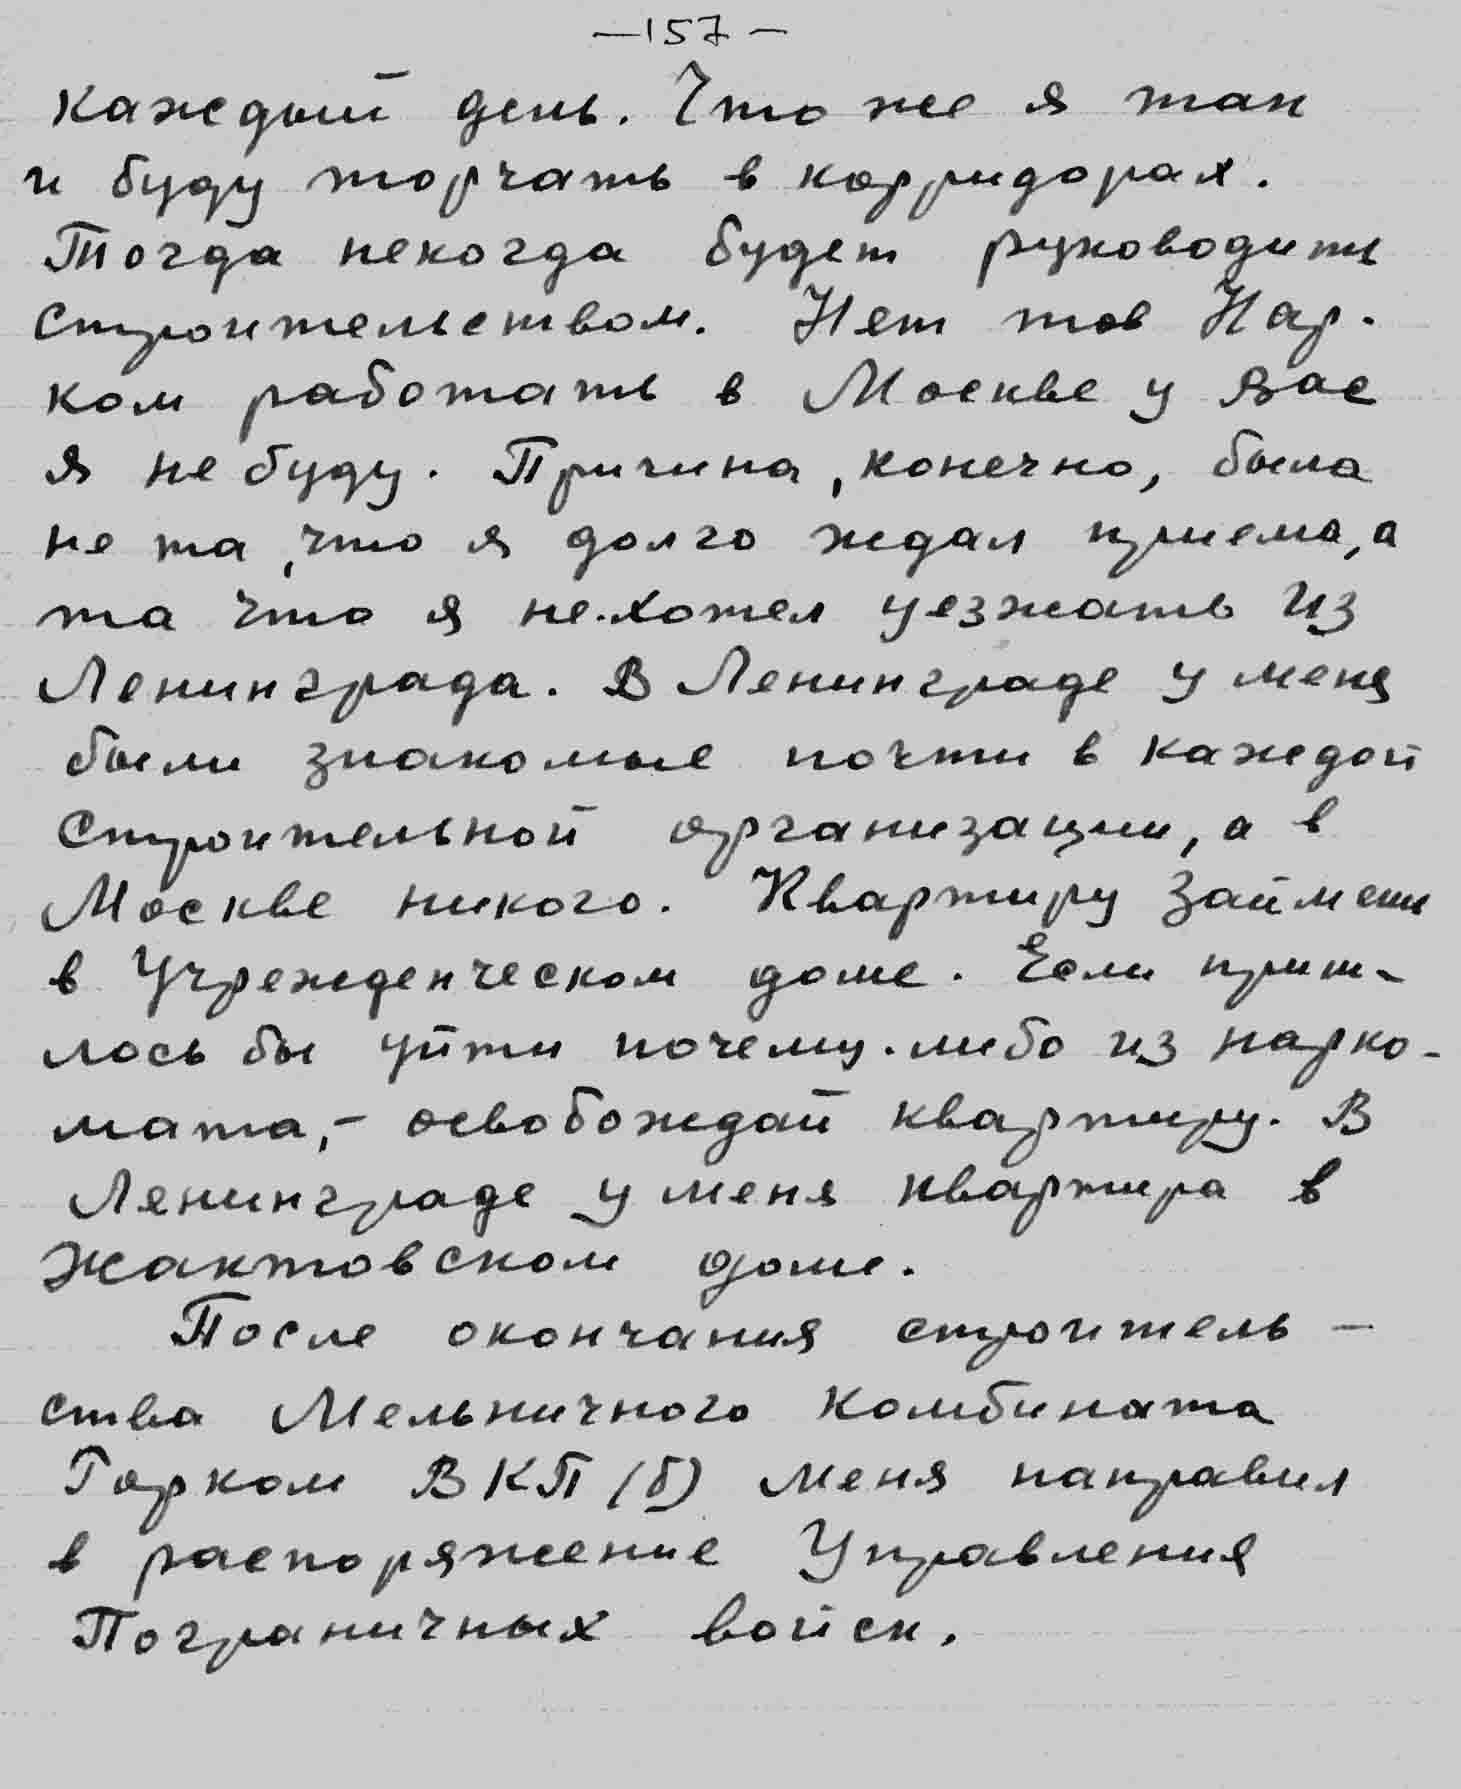 —157—
каждый день. Что же я так
и буду торчать в корридорах.
Тогда некогда будет руководить
строительством. Нет тов Нар-
ком работать в Москве у Вас
я не буду. Причина, конечно, была
не та, что я долго ждал приема, а
та что я не хотел уезжать из
Ленинграда. В Ленинграде у меня
были знакомые почти в каждой
строительной организации, а в
Москве никого. Квартиру займеш
в Учрежденческом доме. Если приш-
лось бы уйти почему-либо из нарко-
мата, – освобождай квартиру. В
Ленинграде у меня квартира в
жактовском доме.
После окончания строитель-
ства Мельничного Комбината
Горком ВКП(б) меня направил
в распоряжение Управления
Пограничных войск.